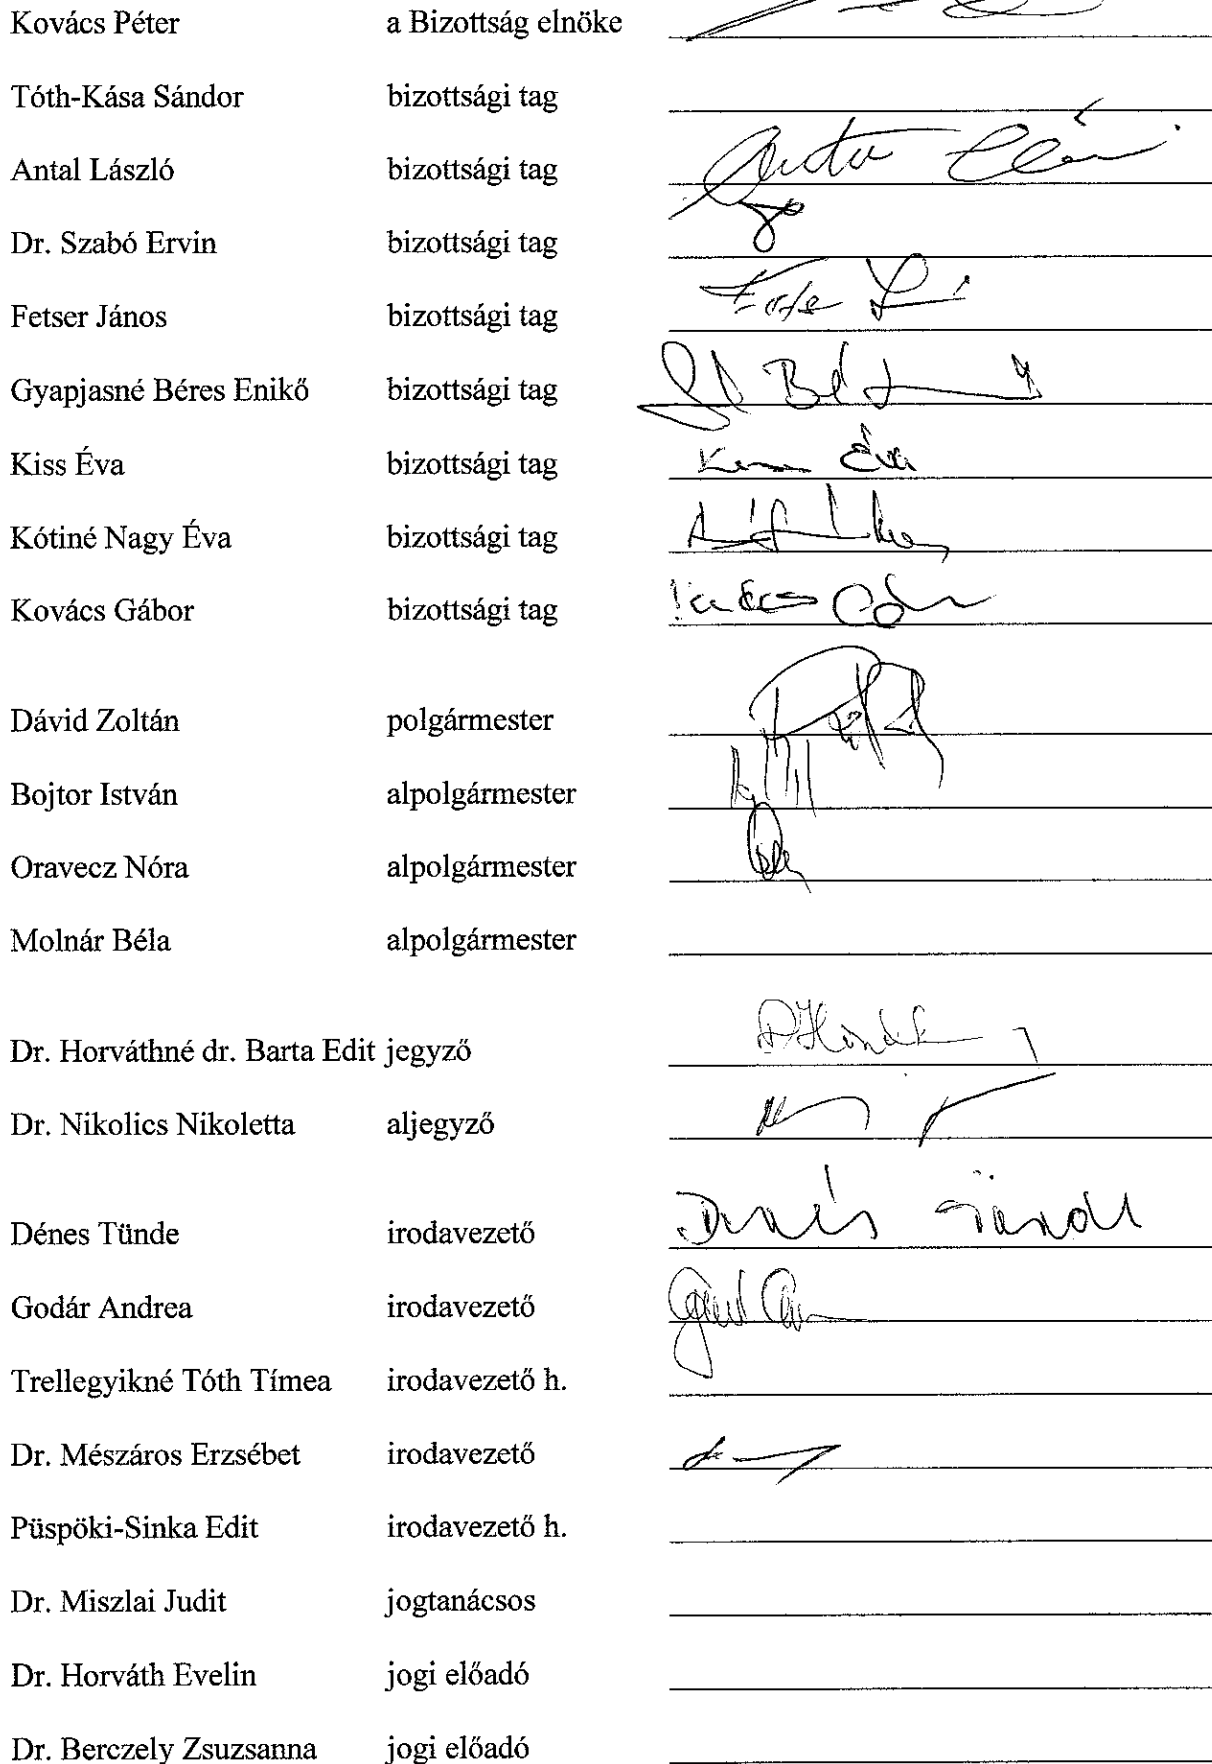 Kovács Péter a Bizottság elnöke
Tóth-Kása Sándor bizottsági tag
Antal László bizottsági tag
Dr. Szabó Ervin bizottsági tag
Fetser János bizottsági tag
Gyapjasné Béres Enikő bizottsági tag
Kiss Éva bizottsági tag Kiss Éva
Kótiné Nagy Éva bizottsági tag
Kovács Gábor bizottsági tag
Dávid Zoltán polgármester
Bojtor István alpolgármester
Oravecz Nóra alpolgármester
Molnár Béla alpolgármester
Dr. Horváthné dr. Barta Edit jegyző
Dr. Nikolics Nikoletta aljegyző
Dénes Tünde irodavezető Dénes Tünde
Godár Andrea irodavezető
Trellegyikné Tóth Tímea irodavezető h.
Dr. Mészáros Erzsébet irodavezető
Püspöki-Sinka Edit irodavezető h.
Dr. Miszlai Judit jogtanácsos
Dr. Horváth Evelin jogi előadó
Dr. Berczely Zsuzsanna jogi előadó